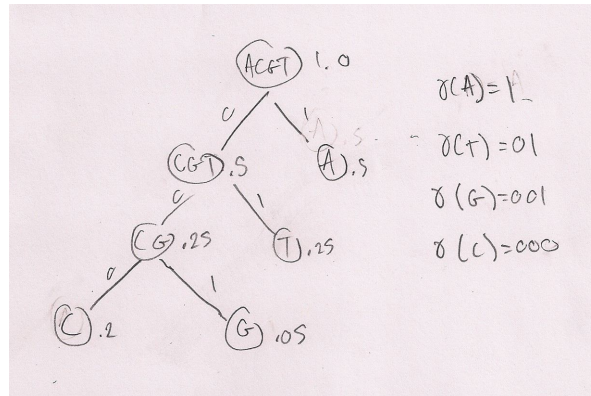 ACGT 1.0
0 1
CGT .5 A .5
0 1
CG .25 T .25
0 1
C .2 G .05
γ(A)=1
γ(T)=01
γ(G)=001
γ(C)=000